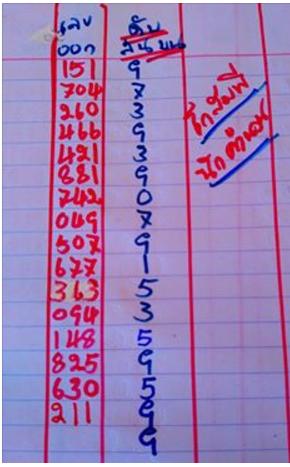 เลข ดับ
ออก สิบบน
151 9
704 7
260 3
466 9
421 3
881 9
742 0
049 7
507 9
677 1
363 5
094 3
148 5
825 9
630 5
211 9
9